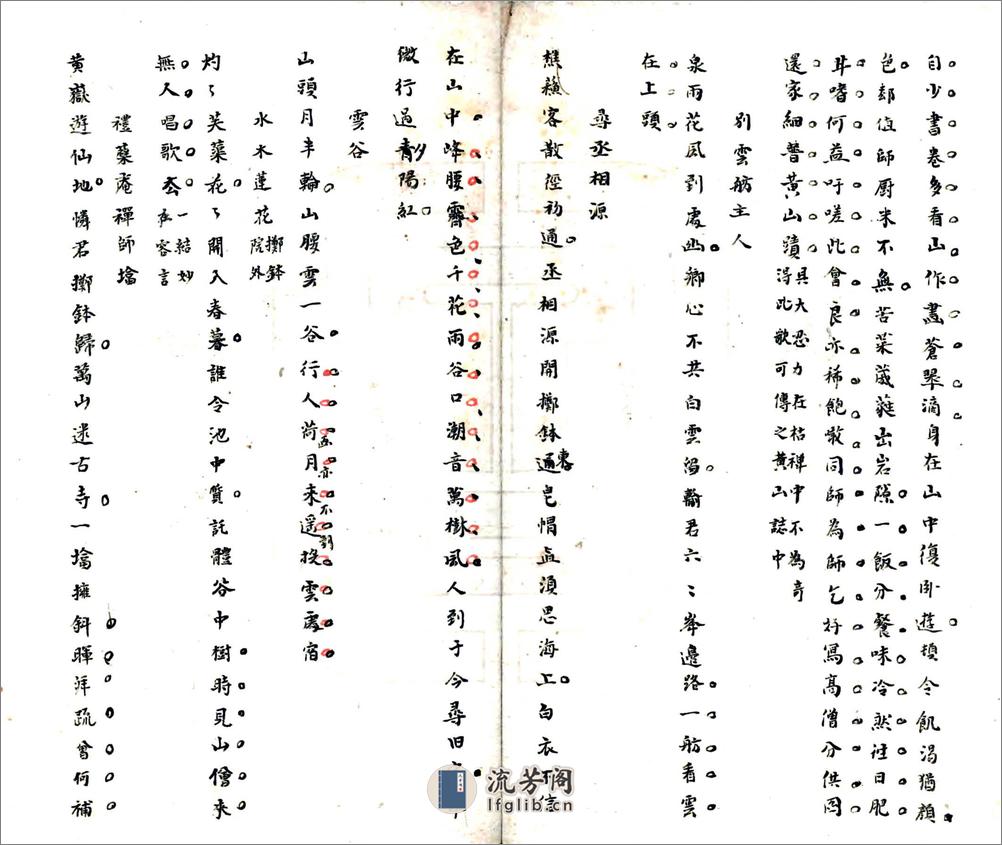 自少書卷多看山作畫蒼翠滴身在山中復卧遊頓令飢渴猶顏
色却值師厨米不無苦菜葳蕤出岩隙一飯分餐味冷然往日肥
耳嗜何益吁嗟此會良亦稀飽散同師為師乞好寫高僧分供图
還家細普黄山蹟具大忍力在枯禪中不為奇
得此歌可傳之黄山誌中
別雲舫主人
泉雨花風到處幽鄉心不共白雲留輸君六六峯邊路一舫看雲
在上頭
尋丞相源
樵蘇客散徑初通丞相源開擲鉢東皂帽直須思海上白衣不信
在山中峰腰霽色千花雨谷口潮音萬樹風人到于今尋旧
微行過青陽紅
雲谷
山頭月半輪山腰雲一谷行人荷月來遥投雲處宿
水木蓮花擲鉢
院外
灼灼芙蕖花花開入春暮誰令池中質託體谷中樹時見山僧來
無人唱歌去一結妙
在容言
禮蘗庵禪師塔
黄嶽遊仙地憐君擲鉢歸萬山迷古寺一塔擁斜暉拜疏曾何補
流芳阁
lfglib.cn